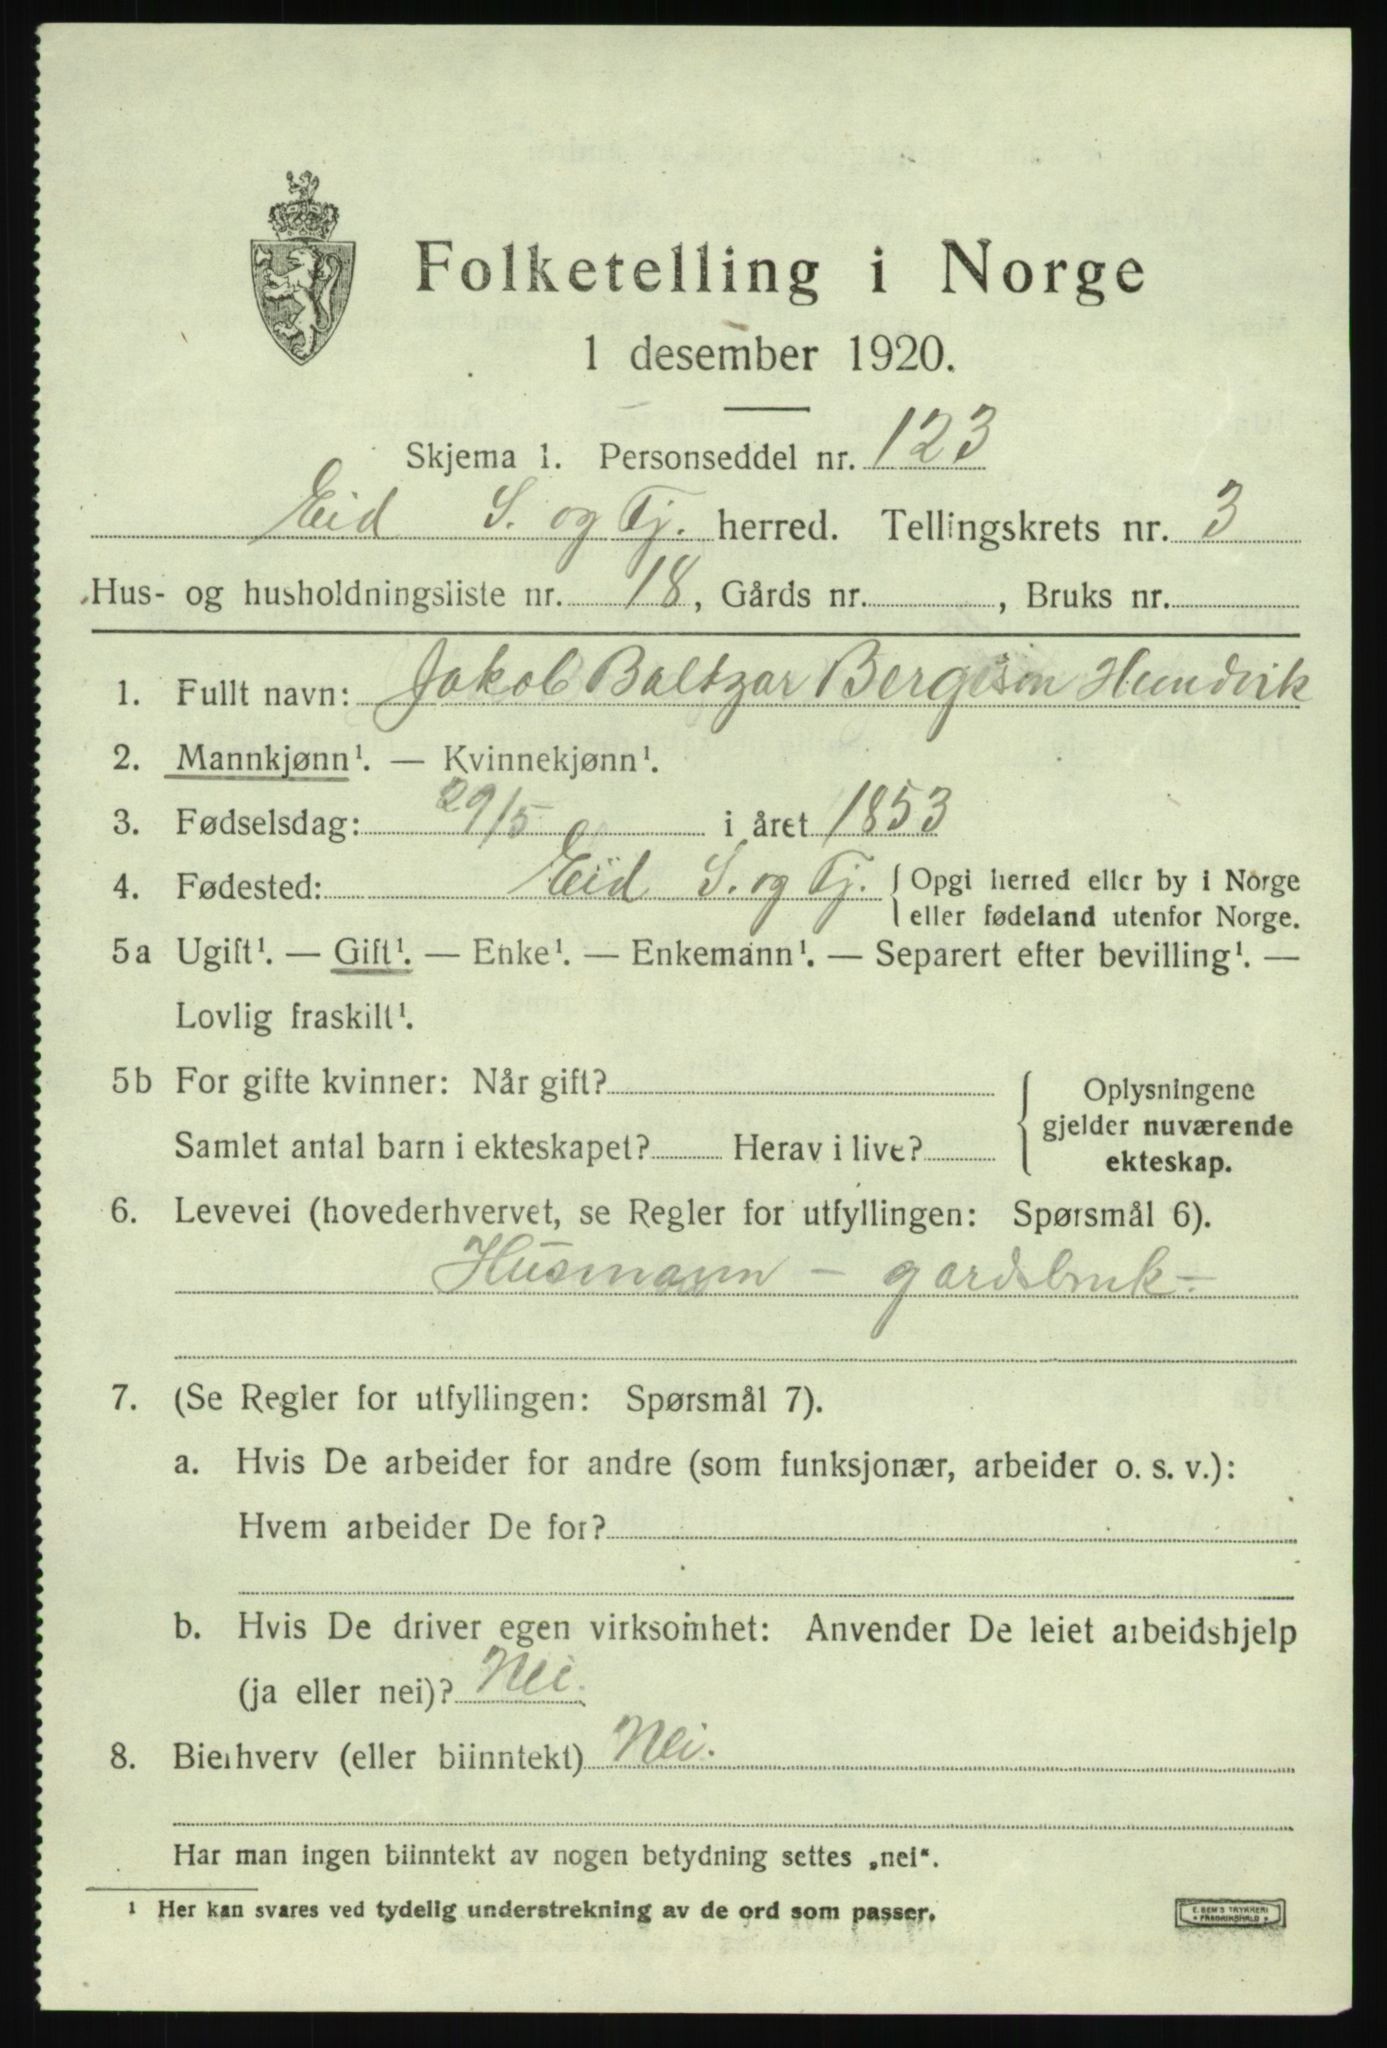 Folketelling i Norge
1 desember 1920.
Skjema 1. Personseddel nr. 123
Eid S. og Fj. herred. Tellingskrets nr. 3
Hus- og husholdningsliste nr. 18, Gårds nr. , Bruks nr.
1. Fullt navn: Jakob Baltzar Bergison Hundvik
2. Mannkjønn¹. — Kvinnekjønn¹.
3. Fødselsdag: 29/5 i året 1853
4. Fødested: Eid S. og Fj. { Opgi herred eller by i Norge
eller fødeland utenfor Norge.
5a Ugift¹. — Gift¹. — Enke¹. — Enkemann¹. — Separert efter bevilling¹. —
Lovlig fraskilt¹.
5b For gifte kvinner: Når gift? { Oplysningene
gjelder nuværende
Samlet antal barn i ekteskapet? Herav i live?
ekteskap.
6. Levevei (hovederhvervet, se Regler for utfyllingen: Spørsmål 6).
Husmann – gardsbruk –
7. (Se Regler for utfyllingen: Spørsmål 7).
a. Hvis De arbeider for andre (som funksjonær, arbeider o. s. v.):
Hvem arbeider De for?
b. Hvis De driver egen virksomhet: Anvender De leiet arbeidshjelp
(ja eller nei)? Nei.
8. Bierhverv (eller biinntekt) Nei.
Har man ingen biinntekt av nogen betydning settes „nei“.
¹ Her kan svares ved tydelig understrekning av de ord som passer.
E. SEM'S TRYKKERI
* FREDRIKSHALD *